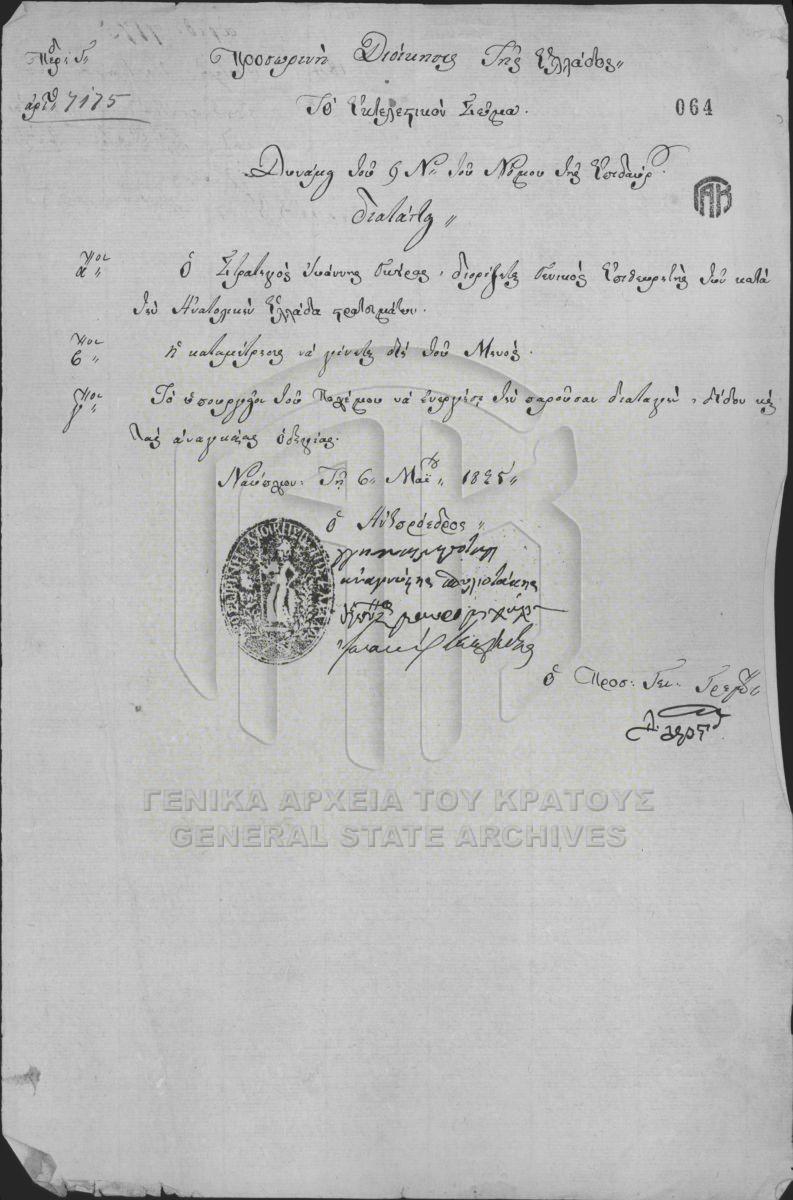 Περ: Γ΄
Προσωρινὴ Διοίκησις Τῆς Ἑλλάδος
ἀριθ: 7175
Τὸ Ἐκτελεστικὸν Σῶμα.
064
Δυνάμει τοῦ Νόμου τῆς Ἐπιδαύρ
ΓΑΚ
διατάττει
α Ὁ Στρατηγὸς Ἰωάννης Γκούρας, διορίζεται Γενικὸς Ἐπιθεωρητὴς τῶν κατὰ
τὴν Ἀνατολικὴν Ἑλλάδα στρατευμάτων.
β Ἡ καταμέτρησις νὰ γίνεται δὶς τοῦ Μηνός.
γ Τὸ ὑπουργεῖον τοῦ Πολέμου νὰ ἐνεργήσῃ τὴν παροῦσαν διαταγὴν, δίδον καὶ
τὰς ἀναγκαίας ὁδηγίας.
Ναύπλιον: Τῇ 6 Μαΐου 1825
ὁ Ἀντιπρόεδρος
ἀναγνώστης σπηλιωτάκης
μαυρομιχάλης
ὁ Προσ: Γεν: Γραμ
ΓΕΝΙΚΑ ΑΡΧΕΙΑ ΤΟΥ ΚΡΑΤΟΥΣ
GENERAL STATE ARCHIVES